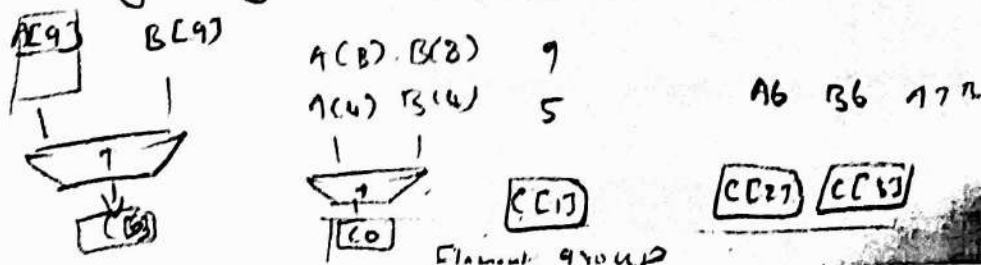 A[9] B[9]
A(8) B(8) 9
A(4) B(4) 5 A6 B6 A7 B
C[0] C0 C[1] C[2] C[3]
Element group